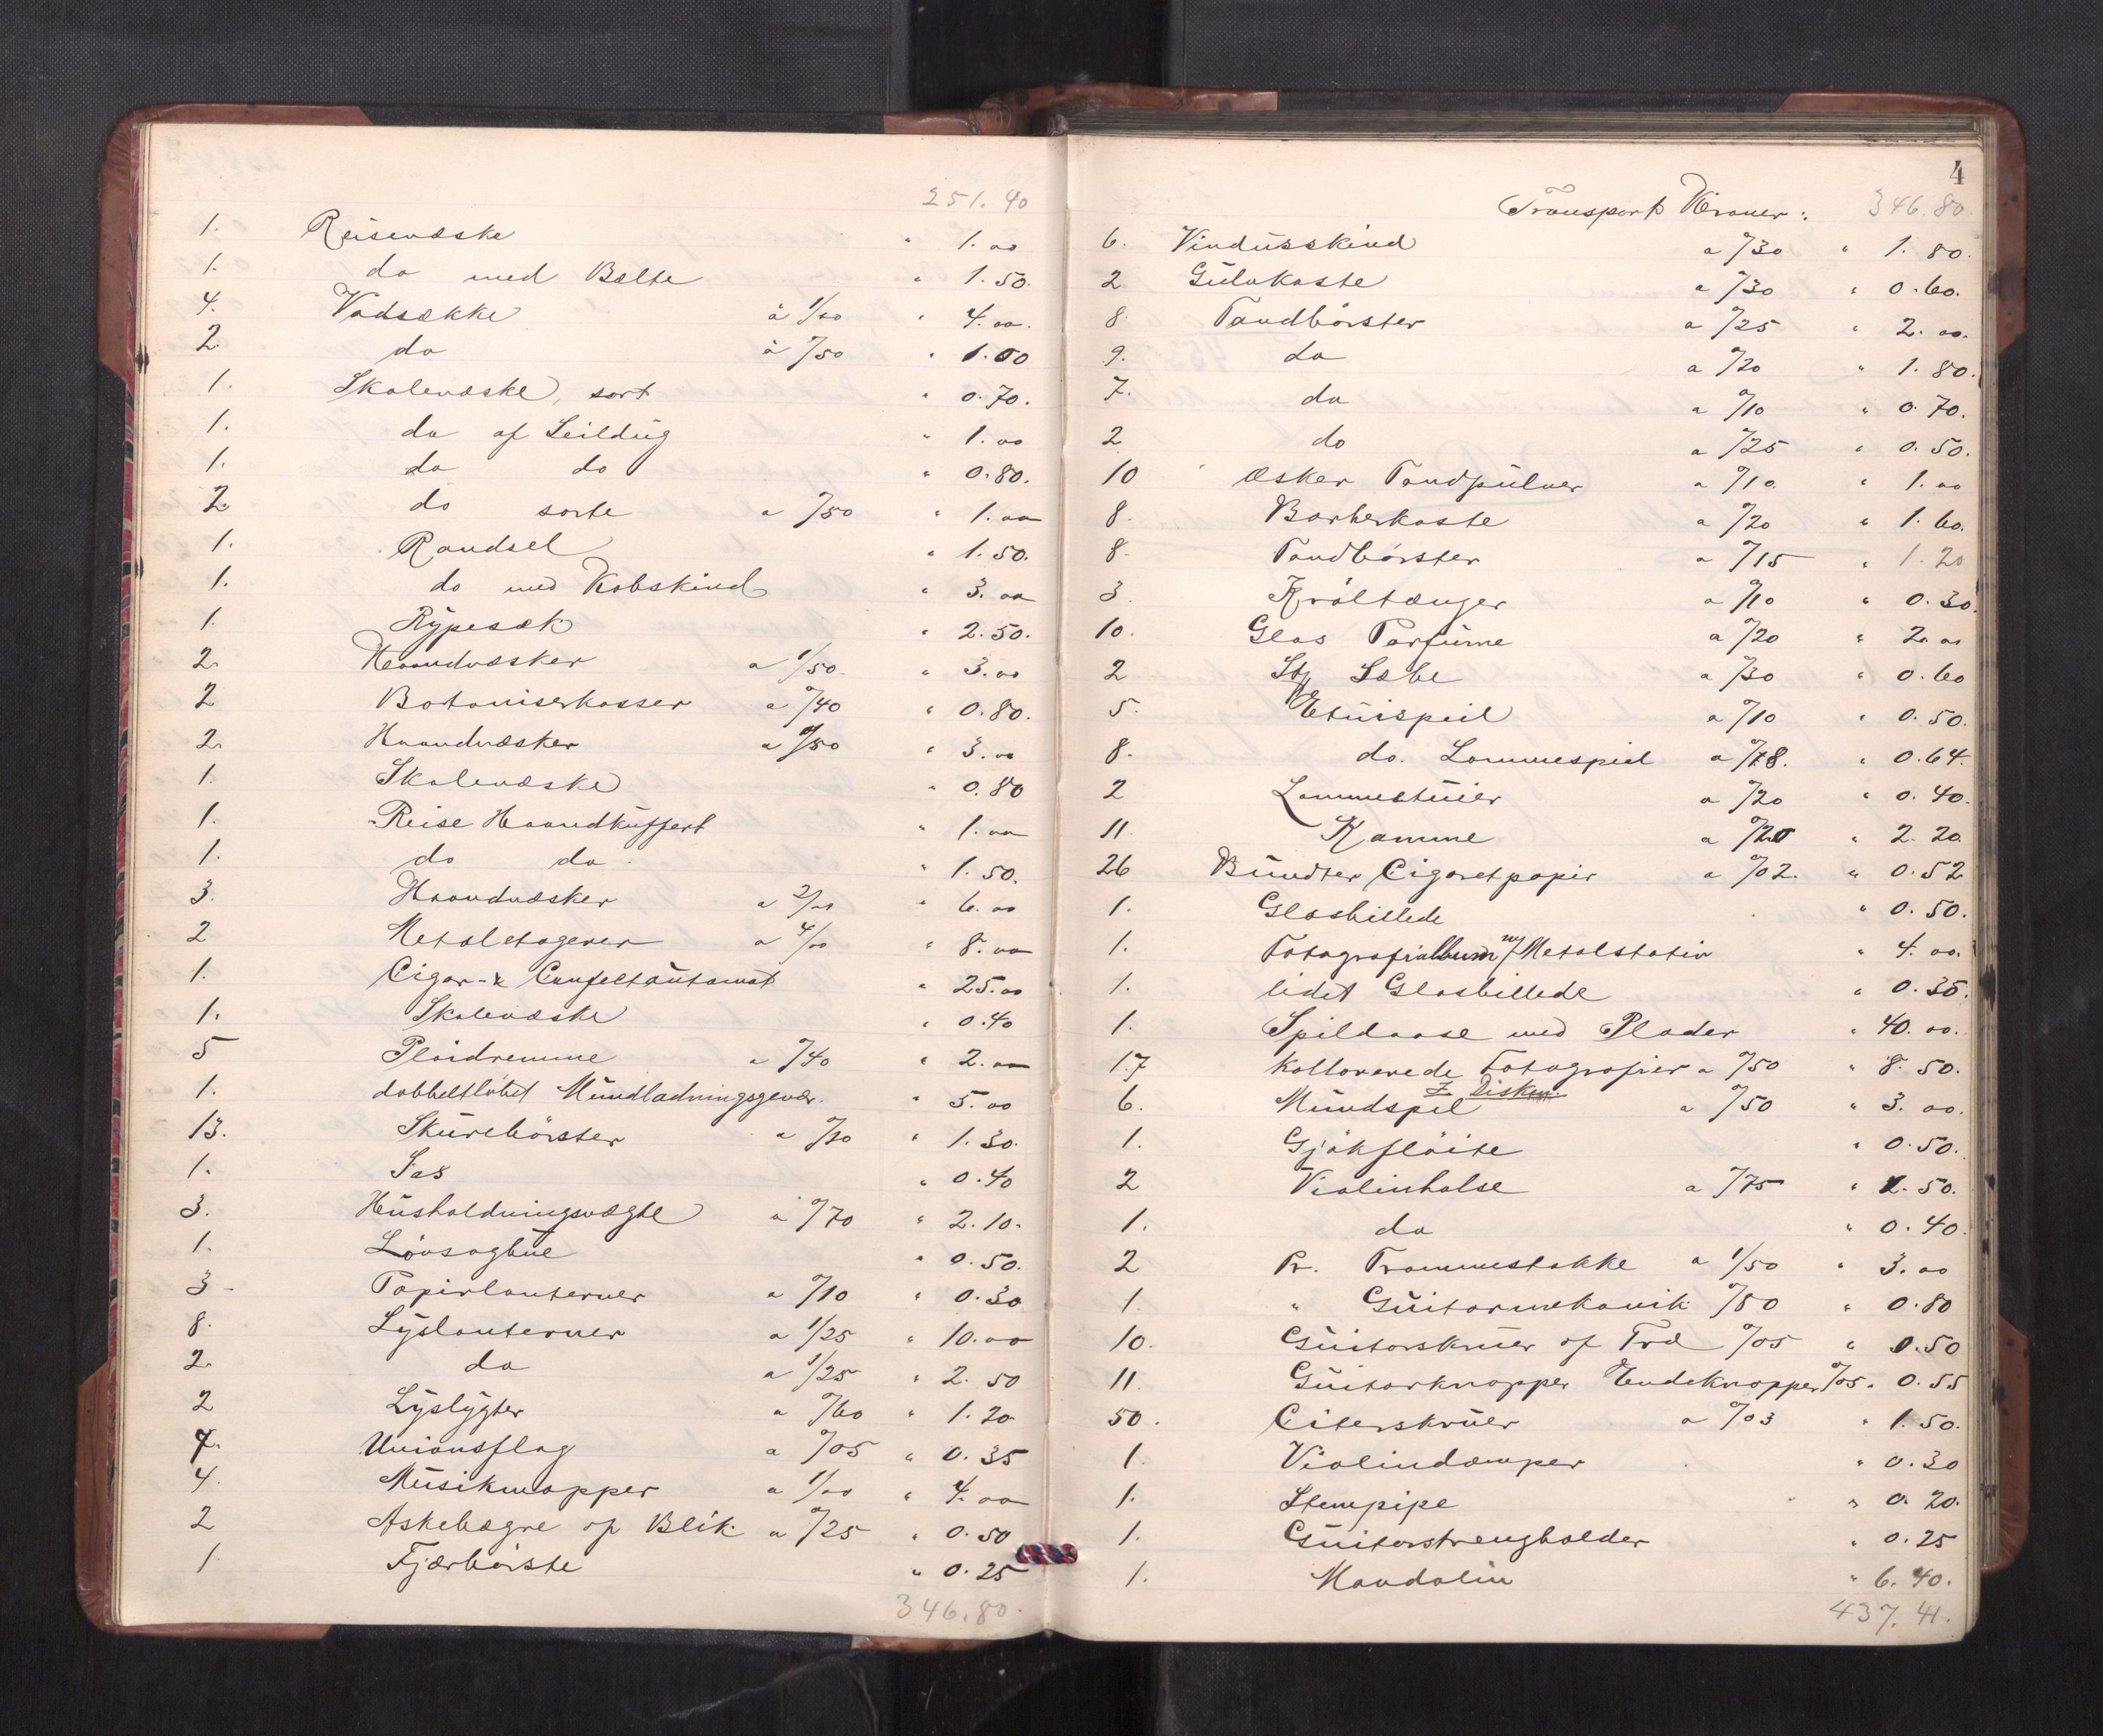 251.40
1. Reisevæske " 1.00
1. do med Belte " 1.50.
4. Vadsække à 1/00 " 4.00.
2. do à 0/50 " 1.00
1. Skolevæske, sort " 0.70.
1. do af Seildüg " 1.00
1. do do " 0.80.
2 do sorte a 0/50 " 1.00
1. Randsel " 1.50.
1. do med Kobskind " 3.00
1. Rÿpesæk " 2.50.
2. Haandvæsker a 1/50. " 3.00
2 Botaniserkasser a 0/40 " 0.80.
2. Haandvæsker a 1/50 " 3.00
1. Skolevæske " 0.80
1. Reise Haandküffert " 1.00
1. do do " 1.50.
3. Haandvæsker a 2/00 " 6.00
2 Metaletagerer a 4/00 " 8.00
1. Cigar- & Confectaütomat " 25.00
1. Skolevæske " 0.40
5 Plaidremme a 0/40 " 2.00
1. dobbeltløbet Mündladningsgevær. " 5.00
13. Skürebörster a 0/10 " 1.30.
1. Sax " 0.40
3. Hüsholdningsvægte à 0/70 " 2.10.
1. Lövsagbüe " 0.50.
3 Papirlanterner a 0/10 " 0.30
8. Lÿslanterner a 1/25 " 10.00
2. do a 1/25 " 2.50
2 Lÿslÿgter a 0/60 " 1.20
7. Unionsflag a 0/05 " 0.35
4. Müsikmapper a 1/00 " 4.00
2 Askebægre af Blik a 0/25 " 0.50
1 Fjærbörste " 0.25
346.80.
4
Transport Kroner: 346.80
6. Vindüsskind a 0/30 " 1.80.
2 Gülvkoste a 0/30 " 0.60.
8 Tandbörster a 0/25 " 2.00.
9. do a 0/20 " 1.80.
7. do a 0/10 " 0.70.
2 do a 0/25 " 0.50.
10 æsker Tandpülver a 0/10. " 1.00
8. Barberkoste a 0/20 " 1.60.
8. Tandbörster a 0/15 " 1.20
3. Krøltænger a 0/10 " 0.30.
10. Glas Parfüme a 0/20 " 2.00
2 Stk Sæbe a 0/30 " 0.60
5. Etüispeil a 0/10 " 0.50.
8. do. Lommespeil a 0/8. " 0.64.
2 Lommeetüier a 0/20 " 0.40.
11. Kamme a 0/20 " 2.20.
26 Bündter Cigaretpapir a 0/02. " 0.52
1. Glasbillede " 0.50.
1. Fotografialbum m/Metalstativ " 4.00.
1. lidet Glasbillede " 0.35.
1. Spildaase med Plader " 40.00.
17 kollorerede Fotografier a 0/50 " 8.50.
I Disken
6. Mündspil a 0/50 " 3.00.
1. Gjökflöite " 0.50.
2 Violinhalse a 0/75 " 1.50.
1. do " 0.40.
2 Pr. Trommestokke a 1/50 " 3.00
1. " Güitarmekanik 0/80 " 0.80
10. Güitarskrüer af Træ 0/05 " 0.50
11. Güitarknapper Endeknapper 0/05. 0.55
50. Citerskrüer a 0/03 " 1.50.
1. Violindæmper " 0.30
1. Stempipe " 0.20.
1. Güitarstrengholder " 0.25
1. Mandolin " 6.40.
437.41.